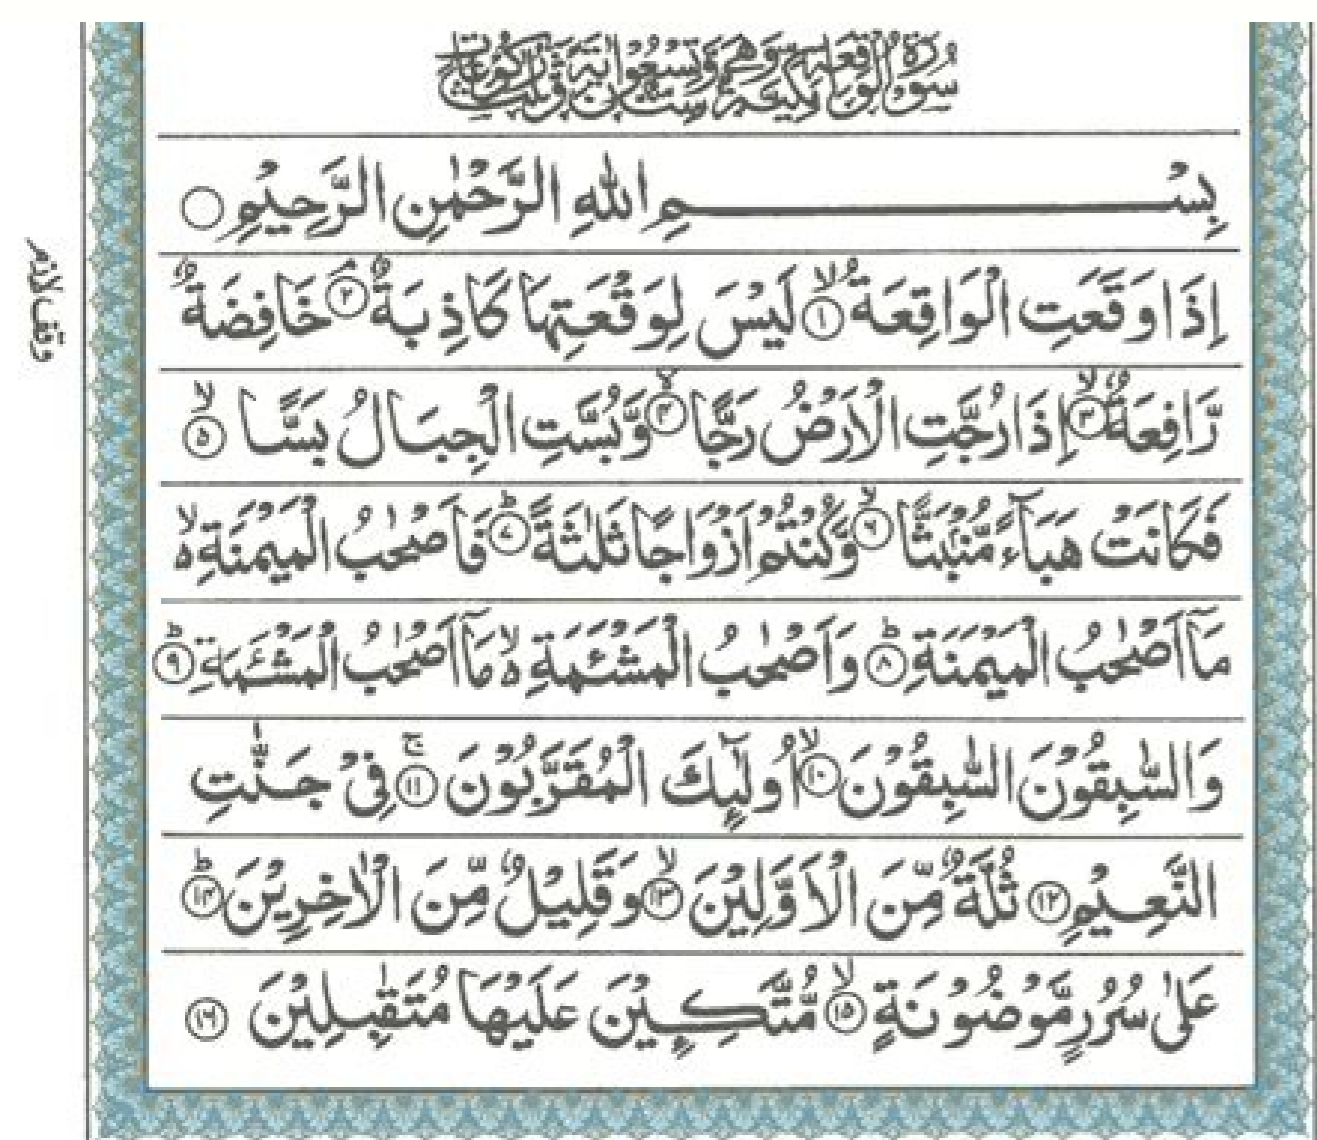 سُوْرَةُ الْوَاقِعَةِ مَكِّيَّةٌ وَّهِيَ سِتٌّ وَّتِسْعُوْنَ اٰيَةً وَّثَلٰثُ رُكُوْعَاتٍ
بِسْمِ اللّٰهِ الرَّحْمٰنِ الرَّحِيْمِ
اِذَا وَقَعَتِ الْوَاقِعَةُ ۙ﴿۱﴾ لَيْسَ لِوَقْعَتِهَا كَاذِبَةٌ ۘ﴿۲﴾ خَافِضَةٌ
رَّافِعَةٌ ۙ﴿۳﴾ اِذَا رُجَّتِ الْاَرْضُ رَجًّا ۙ﴿۴﴾ وَّبُسَّتِ الْجِبَالُ بَسًّا ۙ﴿۵﴾
فَكَانَتْ هَبَآءً مُّنْۢبَثًّا ۙ﴿۶﴾ وَّكُنْتُمْ اَزْوَاجًا ثَلٰثَةً ؕ﴿۷﴾ فَاَصْحٰبُ الْمَيْمَنَةِ ۬ۙ
مَاۤ اَصْحٰبُ الْمَيْمَنَةِ ؕ﴿۸﴾ وَاَصْحٰبُ الْمَشْـَٔمَةِ ۬ۙ مَاۤ اَصْحٰبُ الْمَشْـَٔمَةِ ؕ﴿۹﴾
وَالسّٰبِقُوْنَ السّٰبِقُوْنَ ۙ﴿۱۰﴾ اُولٰٓئِكَ الْمُقَرَّبُوْنَ ۚ﴿۱۱﴾ فِيْ جَنّٰتِ
النَّعِيْمِ ﴿۱۲﴾ ثُلَّةٌ مِّنَ الْاَوَّلِيْنَ ۙ﴿۱۳﴾ وَقَلِيْلٌ مِّنَ الْاٰخِرِيْنَ ؕ﴿۱۴﴾
عَلٰى سُرُرٍ مَّوْضُوْنَةٍ ۙ﴿۱۵﴾ مُّتَّكِـِٕيْنَ عَلَيْهَا مُتَقٰبِلِيْنَ ﴿۱۶﴾
وقف لازم